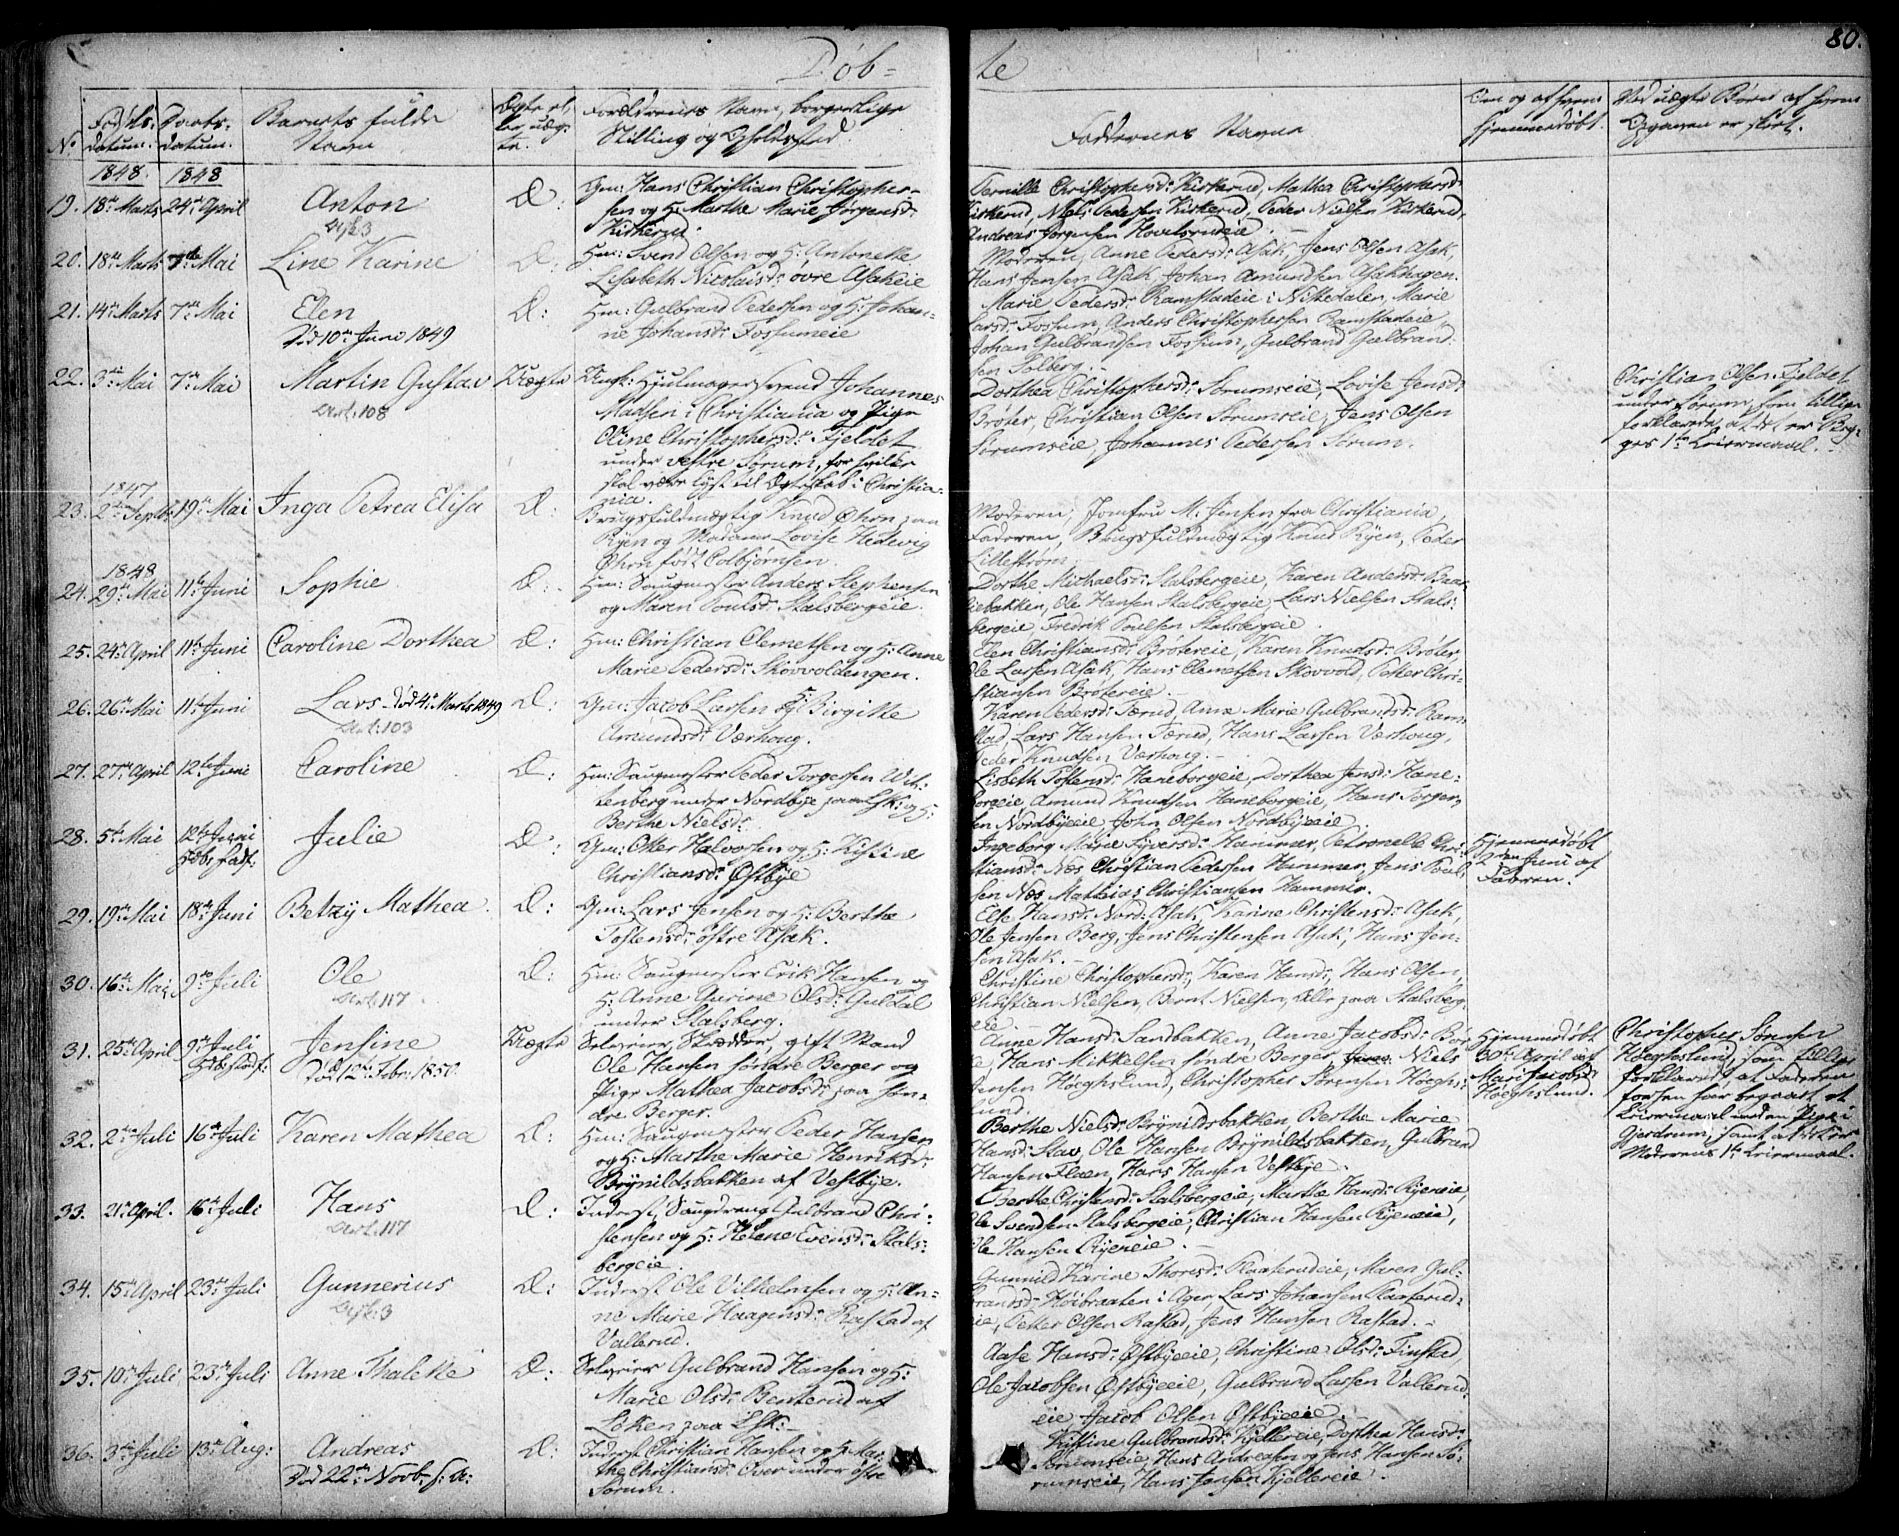 Døb-
te
80.
No
Fødsels-
datum.
Daabs-
datum.
Barnets fulde
Navn
Ægte el-
ler uæg-
te.
Forældrenes Navn, borgerlige
Stilling og Opholdssted.
Faddernes Navne
Om og af hvem
hjemmedøbt.
Ved uægte Børn af hvem
Opgaven er skeet.
1848. 1848
19. 18de Marts 24de April Anton Æ: Gm: Hans Christian Christopher-
sen og H: Marthe Marie Jørgensd:
Kirkerud.
Pernille Christophersd: Kirkerud, Mathea Christophersd:
Kirkerud, Niels Pedersen Kirkerud, Peder Nielsen Kirkerud,
Andreas Jørgensen Hovelsrudeie.
20. 18de Marts 7de Mai Line Karine Æ: Hm: Svend Olsen og H: Antonette
Lisabeth Nicolaisd: øvre Asakeie
Moderen, Anne Pedersd: Asak, Jens Olsen Asak,
Hans Jensen Asak, Johan Amundsen Asakhagen.
21. 14de Marts 7de Mai Elen Æ: Hm: Gulbrand Pedersen og H: Johan-
ne Johansd: Fossumeie
Død 10de Juni 1849
Marie Pedersd: Ramstadeie i Nittedalen, Marie
Larsd: Fossum, Anders Christophersen Ramstadeie,
Johan Gulbrandsen Fossum, Gulbrand Gulbrand-
sen Solberg.
22. 3die Mai 7de Mai Martin Gustav Uægte Ungk: Hjulmagersvend Johannes
Madsen i Christiania og Pige
Oline Christophersd: Fjeldet
under vestre Sørum, for hvilke
skal være lyst til Ægteskab i Christia-
nia.
Dorthea Christophersd: Sørumseie, Lovise Jensd:
Brøter, Christian Olsen Sørumseie, Jens Olsen
Sørumseie, Johannes Pedersen Sørum.
Christian Olsen Fjeldet
under Sørum, som tillige
forklarede, at det er Beg-
ges 1ste Leiermaal.
1847
23. 2den Septbr: 19de Mai Inga Petrea Elisa Æ: Brugsfuldmægtig Knud Øhrn paa
Ryen og Madame Lovise Hedevig
Øhrn født Colbjørnsen.
Moderen, Jomfru M: Jensen fra Christiania,
Faderen, Brugsfuldmægtig Knud Ryen, Peder
Lillestrøm.
1848
24. 29de Mai 11te Juni Sophie Æ: Hm: Saugmester Anders Stephensen
og Maren Poulsd: Stalsbergeie.
Dorthe Michaelsd: Stalsbergeie, Karen Andersd:
Ole Hansen Stalsbergeie, Lars Nielsen Stals-
bergeie, Fredrik Poulsen Stalsbergeie.
25. 24de April 11te Juni Caroline Dorthea Æ: Hm: Christian Clemetsen og H: Anne
Marie Pedersd: Skovvoldengen.
Elen Christiansd: Brøtereie, Karen Knudsd: Brøter
Ole Larsen Asak, Hans Clemetsen Skovvold, Petter Chri-
stiansen Brøtereie.
26. 26de Mai 11te Juni Lars Død 4de Marts 1849 Æ: Gm: Jacob Larsen og H: Birgitte
Amundsd: Værhoug.
Karen Pedersd: Tærud, Anne Marie Gulbrandsd: Ram-
stad, Lars Hansen Tærud, Hans Larsen Værhoug,
Peder Knudsen Værhoug.
27. 27de April 12te Juni Caroline Æ: Hm: Saugmester Peder Torgersen Wit-
tenberg under Nordbye paa Lsk: og H:
Berthe Nielsd:
Lisbeth Tostensd: Haneborgeie, Dorthea Jensd: Hane-
borgeie, Amund Knudsen Haneborgeie, Hans Torger-
sen Nordbyeeie, John Olsen Nordbyeeie.
28. 5te Mai 12te Juni Julie Æ: Gm: Otter Halvorsen og H: Kistine
Christiansd: Østbye
Ingeborg Marie Syversd: Hammer, Petronelle Chri-
stiansd: Næs, Christian Pedersen Hammer, Jens Poul-
sen Næs, Mathias Christiansen Hammer.
Hjemmedøbt
2den Juni af
Faderen.
29. 19de Mai 18de Juni Betzy Mathea. Æ: Gm: Lars Jensen og H: Berthe
Tostensd: østre Asak.
Else Hansd: Nord-Asak, Karine Christensd: Asak,
Ole Jensen Berg, Jens Christensen Asak, Hans Jen-
sen Asak.
30. 16de Mai 9de Juli Ole Æ: Hm: Saugmester Erik Hansen og
H: Anne Gurine Olsd: Guldal
under Stalsberg.
Christine Christophersd:, Karen Hansd:, Hans Olsen,
Christian Nielsen, Bernt Nielsen, Alle paa Stalsberg
eie.
31. 25de April 9de Juli Jensine Uægte Selveier, Skrædder, gift Mand
Ole Hansen søndre Berger og
Pige Mathea Jacobsd: paa søn-
dre Berger.
Død 12te Febr: 1850.
Anne Hansd: Sandbakken, Anne Jacobsd:
Hans Mikkelsen søndre Berger, Niels
Jensen Høeghslund, Christopher Sørensen Høeghs-
lund.
Hjemmedøbt
30te April af
Mari Jacobsd:
Høeghslund.
Christopher Sørensen
Høeghslund, som tillige
forklarede, at Faderen
forhen har begaaet et
Leiermaal med en Pige i
Gjerdrum, samt at det er
Moderens 1ste Leiermaal.
32. 2den Juli 16de Juli Karen Mathea Æ: Hm: Saugmester Peder Hansen
og H: Marthe Marie Henriksd:
Brynildsbakken af Vestbye.
Berthe Nielsd: Brynildsbakken, Berthe Marie
Hansd: Stav, Ole Hansen Brynildsbakken, Gulbrand
Hansen Flaen, Hans Hansen Vestbye.
33. 21de April. 16de Juli Hans Æ: Inderst, Saugdreng Gulbrand Chri-
stensen og H: Helene Evensd: Stals-
bergeie.
Berthe Christensd: Stalsbergeie, Marthe Hansd: Ryeneie,
Ole Svendsen Stalsbergeie, Christian Hansen Ryeneie,
Ole Hansen Ryeneie.
34. 15de April 23de Juli Gunnerius Æ: Inderst Ole Vilhelmsen og H: An-
ne Marie Haagensd: Rastad af
Vallerud.
Gunnild Karine Thoresd: Kaaterudeie, Maren Gul-
brandsd: Høibraaten i Ager, Lars Johansen Kaaterud-
eie, Petter Olsen Rastad, Jens Hansen Rastad.
35. 10de Juli 23de Juli Anne Thalette Æ: Selveier Gulbrand Hansen og H:
Marie Olsd: Benterud af
Løken paa Lsk:
Aase Hansd: Østbyeeie, Christine Olsd: Finstad,
Ole Jacobsen Østbyeeie, Gulbrand Larsen Vallerud-
eie, Jacob Olsen Østbyeeie.
36. 3die Juli 13de Aug: Andreas Æ: Inderst Christian Hansen og H: Mar-
the Christiansd: Over under østre
Sørum.
Død 22de Novb: s: A:
Kistine Gulbrandsd: Kjellereie, Dorthea Hansd:
Sørumseie, Hans Andreasen og Jens Hansen Sø-
rumseie, Hans Jensen Kjellereie.